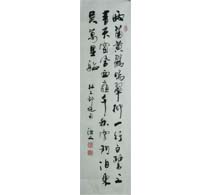 两箇黄鸝鳴翠柳一行白鷺上
青天窗含西嶺千秋雪門泊東
吳萬里船